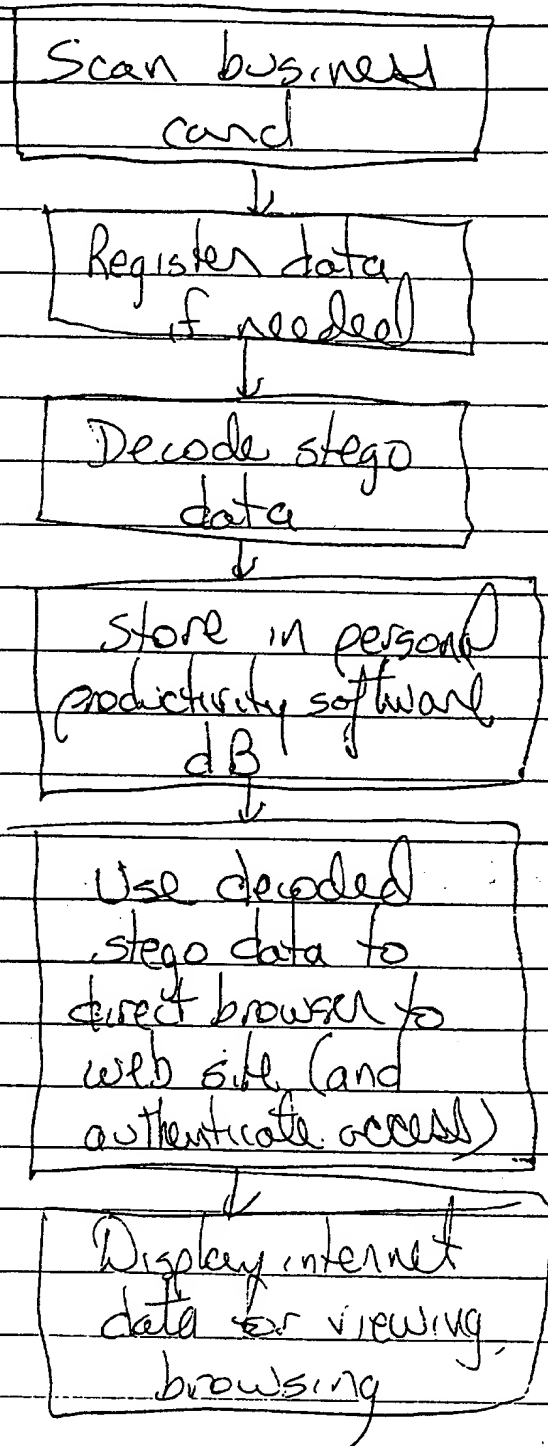 Scan business
card
Register data,
if needed
Decode stego
data
Store in personal
productivity software
dB
Use decoded
stego data to
direct browser to
web site (and
authenticate access)
Display internet
data for viewing,
browsing